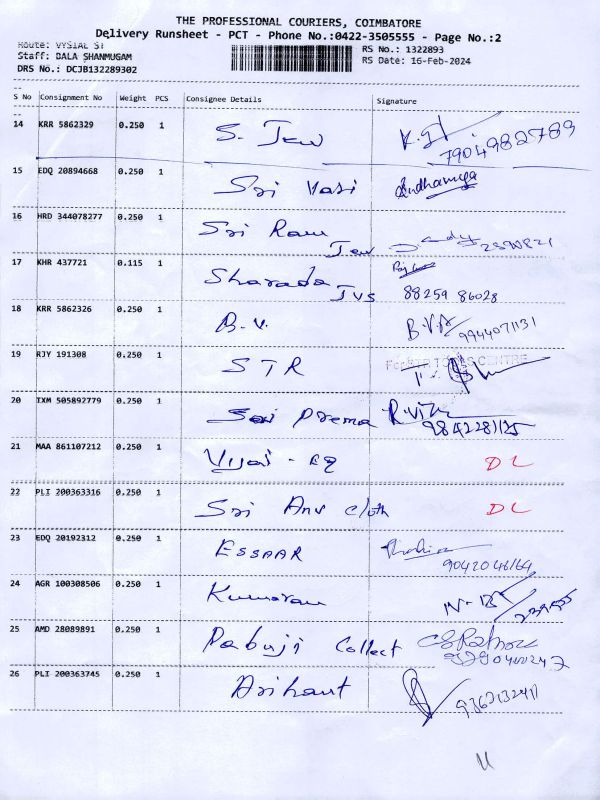 THE PROFESSIONAL COURIERS, COIMBATORE
Delivery Runsheet - PCT - Phone No.:0422-3505555 - Page No.:2
Route: VYSIAL ST
Staff: DALA SHANMUGAM
DRS No.: DCJB132289302
RS No.: 1322893
RS Date: 16-Feb-2024
S No Consignment No Weight PCS Consignee Details Signature
14 KRR 5862329 0.250 1 S. Jew 7904982783
15 EDQ 20894668 0.250 1 Sri Vasi
16 HRD 344078277 0.250 1 Sri Ram Jew
17 KHR 437721 0.115 1 Sharada JVS 88259 86028
18 KRR 5862326 0.250 1 B.V. B.V.A 9944071131
19 RJY 191308 0.250 1 STR
20 IXM 505892779 0.250 1 Sri Prema 9842281125
21 MAA 861107212 0.250 1 Vijai - EQ DL
22 PLI 200363316 0.250 1 Sri Anu cloth DL
23 EDQ 20192312 0.250 1 ESSAAR
24 AGR 100308506 0.250 1 Kumaran
25 AMD 28089891 0.250 1 Pabuji Collect
26 PLI 200363745 0.250 1 Arihant